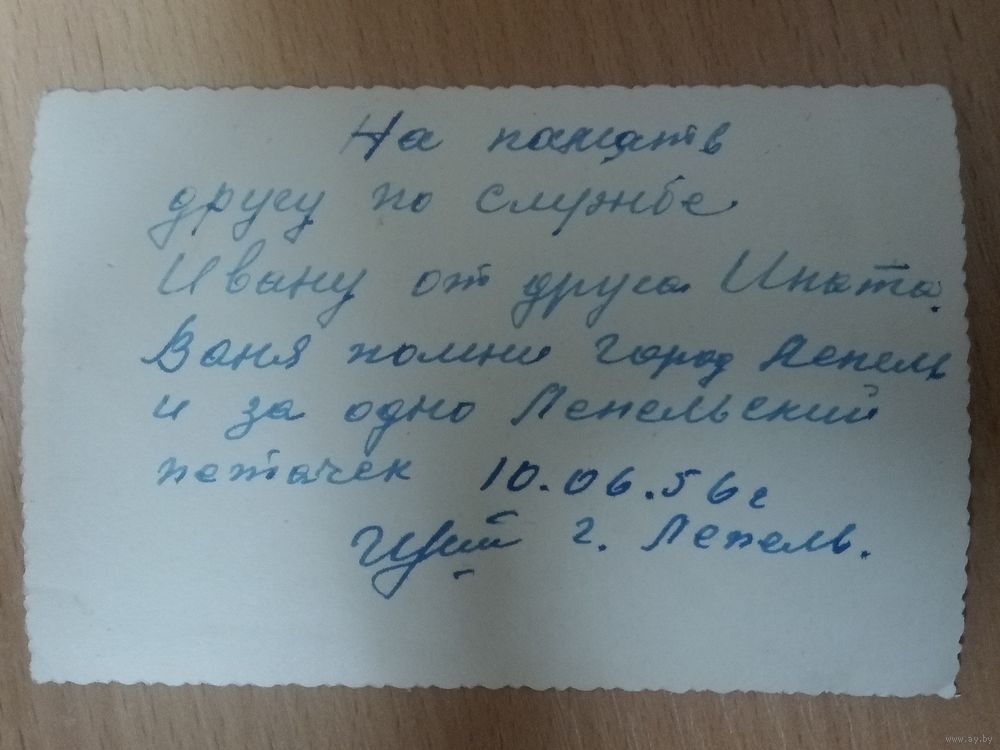 На память
другу по службе
Ивану от друга Игната.
Ваня помни город Лепель
и за одно Лепельский
петачек 10.06.56г
г. Лепель.
www.ay.by